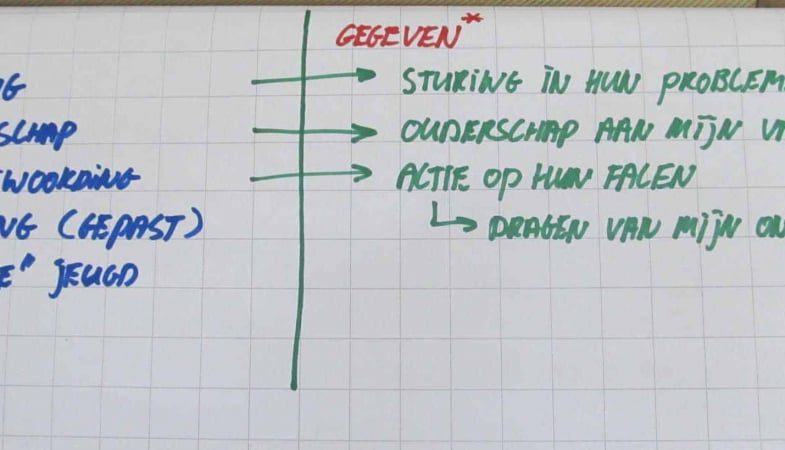 GEGEVEN*
G → STURING IN HUN PROBLEM
SCHAP → OUDERSCHAP AAN MIJN VA
TWOORDING → ACTIE OP HUN FALEN
NG (GEPAST) ↳ DRAGEN VAN MIJN ON
E" JEUGD